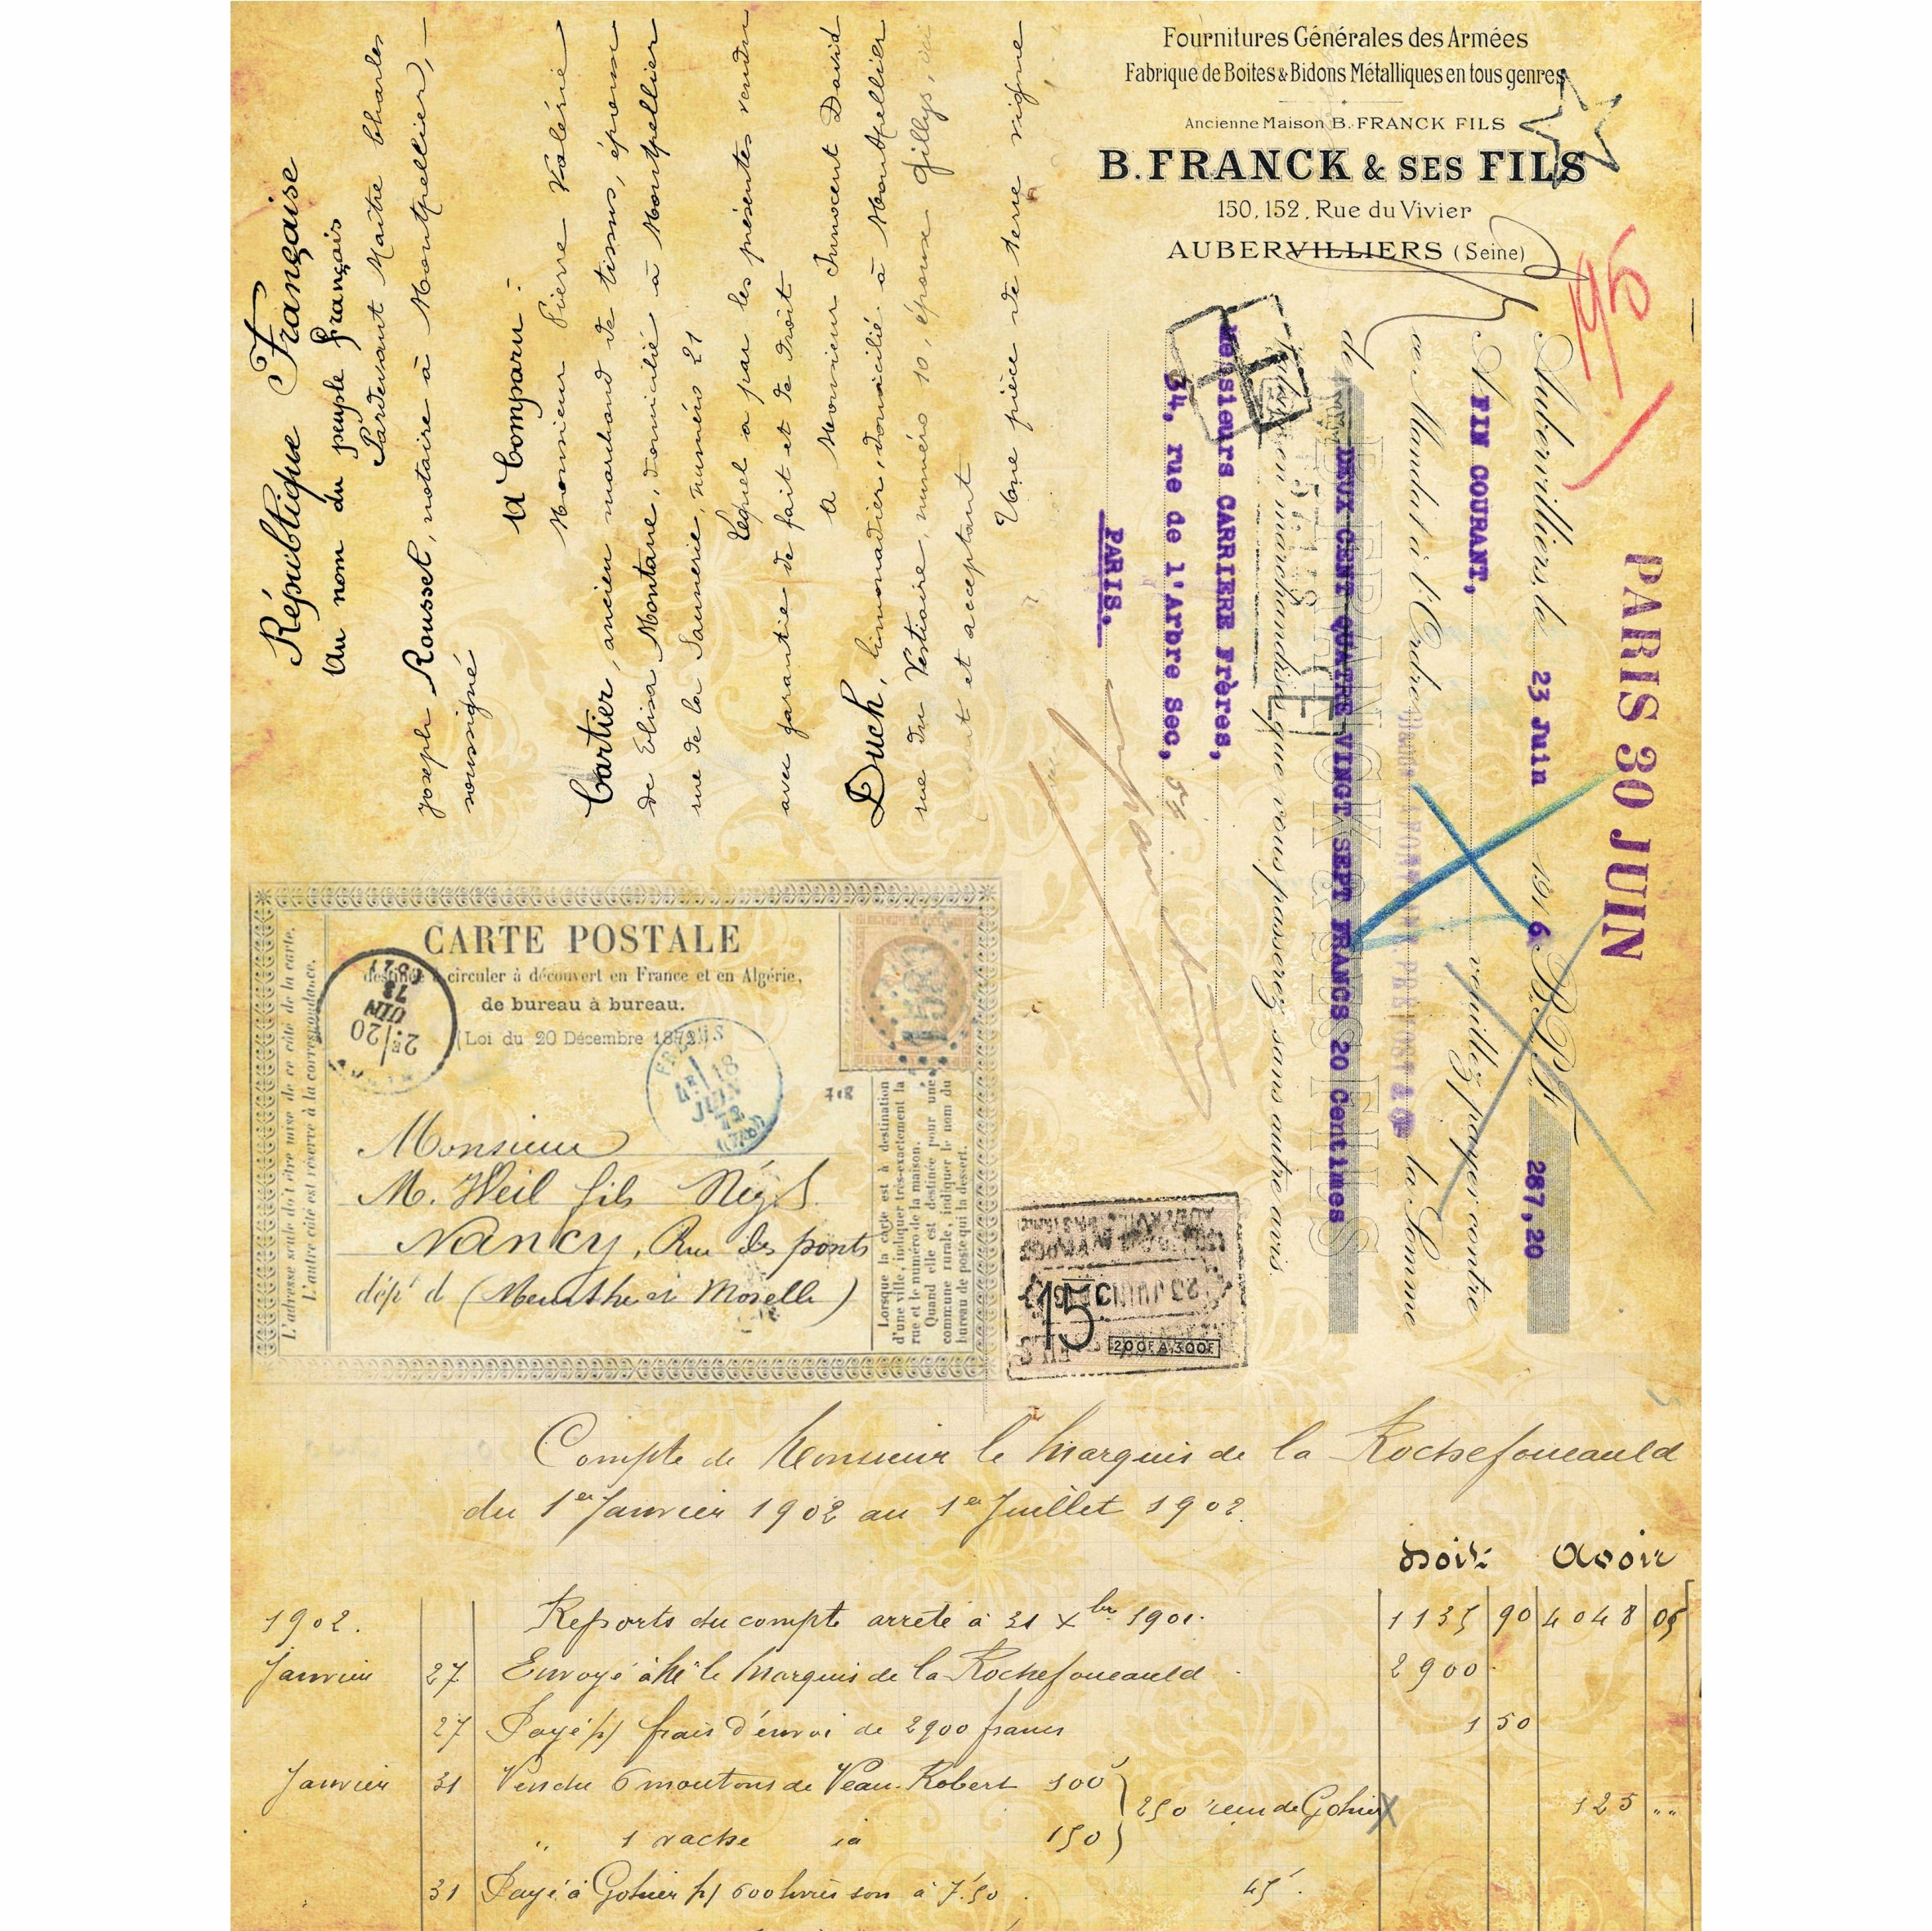 République Française
Au nom du peuple français
Pardevant Maître Charles
Joseph Rousset, notaire à Montpellier,
soussigné
A Comparu :
Monsieur Pierre Valérie
Cartier, ancien marchand de tissus, époux
de Elisa Montane, domicilié à Montpellier
rue de la Saunerie, numéro 21
Lequel a par les présentes vendu
avec garantie de fait et de droit
A Monsieur Innocent David
Duch, limonadier, domicilié à Montpellier
rue du Vestiaire, numéro 10, époux Gillys, ici
présent et acceptant
Une pièce de terre vigne
Fournitures Générales des Armées
Fabrique de Boites & Bidons Métalliques en tous genres
Ancienne Maison B. FRANCK FILS
B. FRANCK & SES FILS
150, 152, Rue du Vivier
AUBERVILLIERS (Seine)
PARIS 30 JUIN
Aubervilliers, le 23 Juin 1916 B.P.F. 287,20
A FIN COURANT, veuillez payer contre
ce Mandat à l'Ordre la Somme
de DEUX CENT QUATRE VINGT SEPT FRANCS 20 Centimes
B. FRANCK & SES FILS
valeur en marchandises que vous passerez sans autre avis.
Messieurs CARRIERE Frères,
34, rue de l'Arbre Sec,
PARIS.
CARTE POSTALE
destinée à circuler à découvert en France et en Algérie,
de bureau à bureau.
Loi du 20 Décembre 1872
L'adresse seule doit être mise de ce côté de la carte.
L'autre côté est réservé à la correspondance.
2E/20
JUIN
FREJUS
4E/18
JUIN
718
Monsieur
M. Weil fils Négt
Nancy, Rue des ponts
dépt d (Meurthe et Moselle)
Lorsque la carte est à destination
d'une ville, indiquer très-exactement la
rue et le numéro de la maison.
Quand elle est destinée pour une
commune rurale, indiquer le nom du
bureau de poste qui la dessert.
23 JUIN
15 C
200F A 300F
Compte de Monsieur le Marquis de la Rochefoucauld
du 1er Janvier 1902 au 1er Juillet 1902.
Doit Avoir
1902. Reports du compte arrêté à 31 Xbre 1901. 1135 90 4048 05
Janvier 27 Envoyé à M. le Marquis de la Rochefoucauld 2900
27 Payé p/ frais d'envoi de 2900 francs 1 50
Janvier 31 Vendu 6 moutons de Veau-Robert 100
250 reçu de Gohier 125 " "
" 1 vache id 150
31 Payé à Gohier p/ 600 livres son à 7.50 45